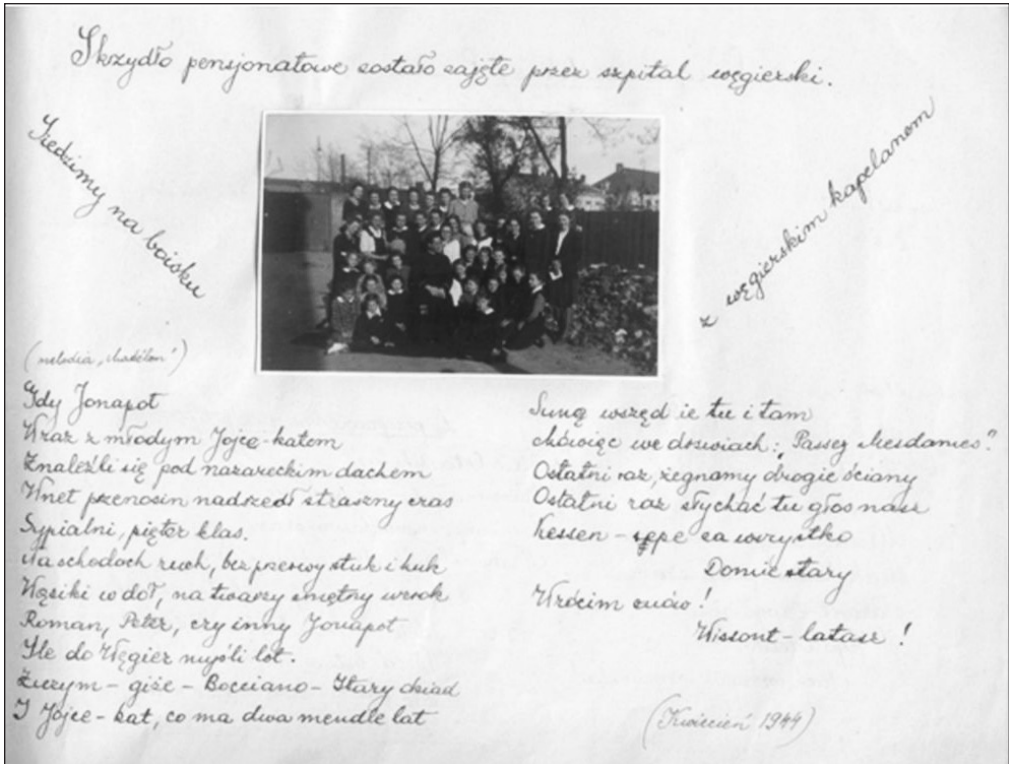 Skrzydło pensjonatowe zostało zajęte przez szpital węgierski.
Siedzimy na boisku
z węgierskim kapelanem
(melodia „Madelon")
Gdy Jonapot
Wraz z młodym Jojce-katem
Znaleźli się pod nazareckim dachem
Wnet przenosin nadszedł straszny czas
Sypialni, pięter klas.
Na schodach ruch, bez przerwy stuk i huk
Wąsiki w doł, na twarzy smętny wzrok
Roman, Peter, czy inny Jonapot
Śle do Węgier myśli lot.
- giże - Bocciano - Stary dziad
I Jojce-kat, co ma dwa mendle lat
Suną wszędzie tu i tam
Mówiąc we drzwiach: „Passez Mesdames"
Ostatni raz, żegnamy drogie ściany
Ostatni raz słychać tu głos nasz
Kessen - sępe za wszystko
Domie stary
Wrócim znów!
Wissont - latasz!
(Kwiecień 1944)